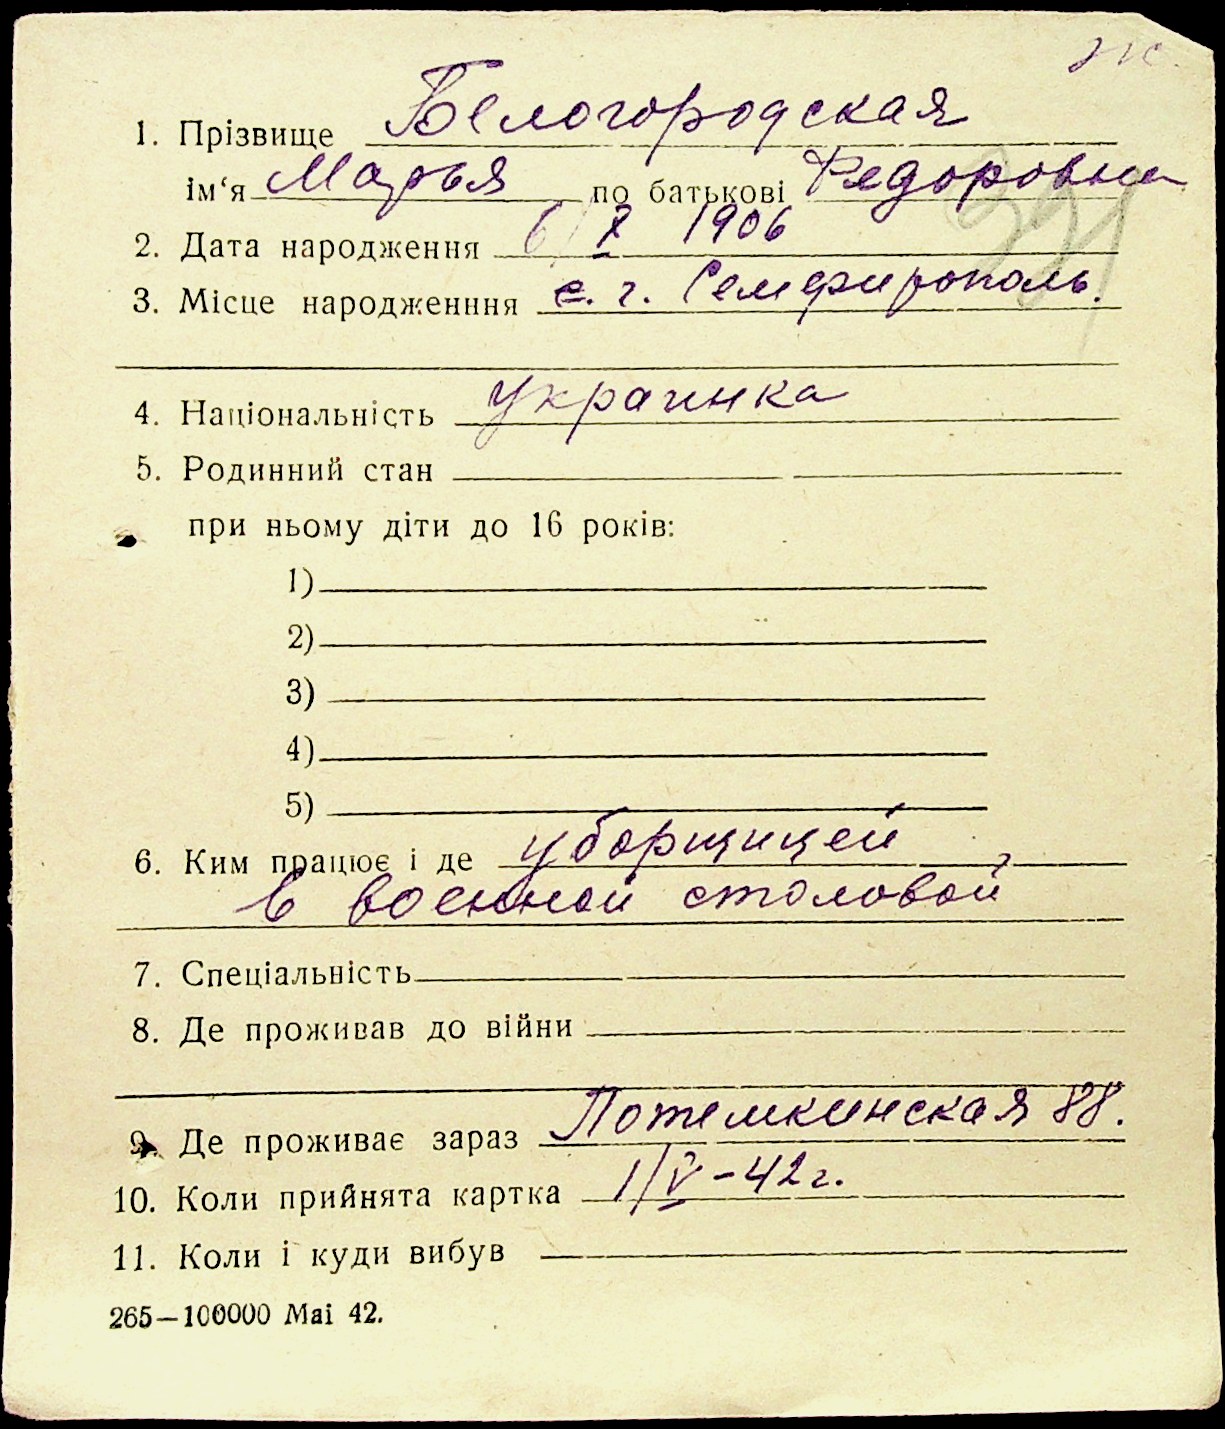 1. Прізвище Белогородская
ім‘я Марья по батькові Федоровна
2. Дата народження 6/X 1906
3. Місце народженння г. Семферополь.
4. Національність украинка
5. Родинний стан
при ньому діти до 16 років:
1)
2)
3)
4)
5)
6. Ким працює і де уборщицей
в военной столовой
7. Спеціальність
8. Де проживав до війни
9. Де проживає зараз Потемкинская 88.
10. Коли прийнята картка 1/V – 42 г.
11. Коли і куди вибув
265—100000 Mai 42.